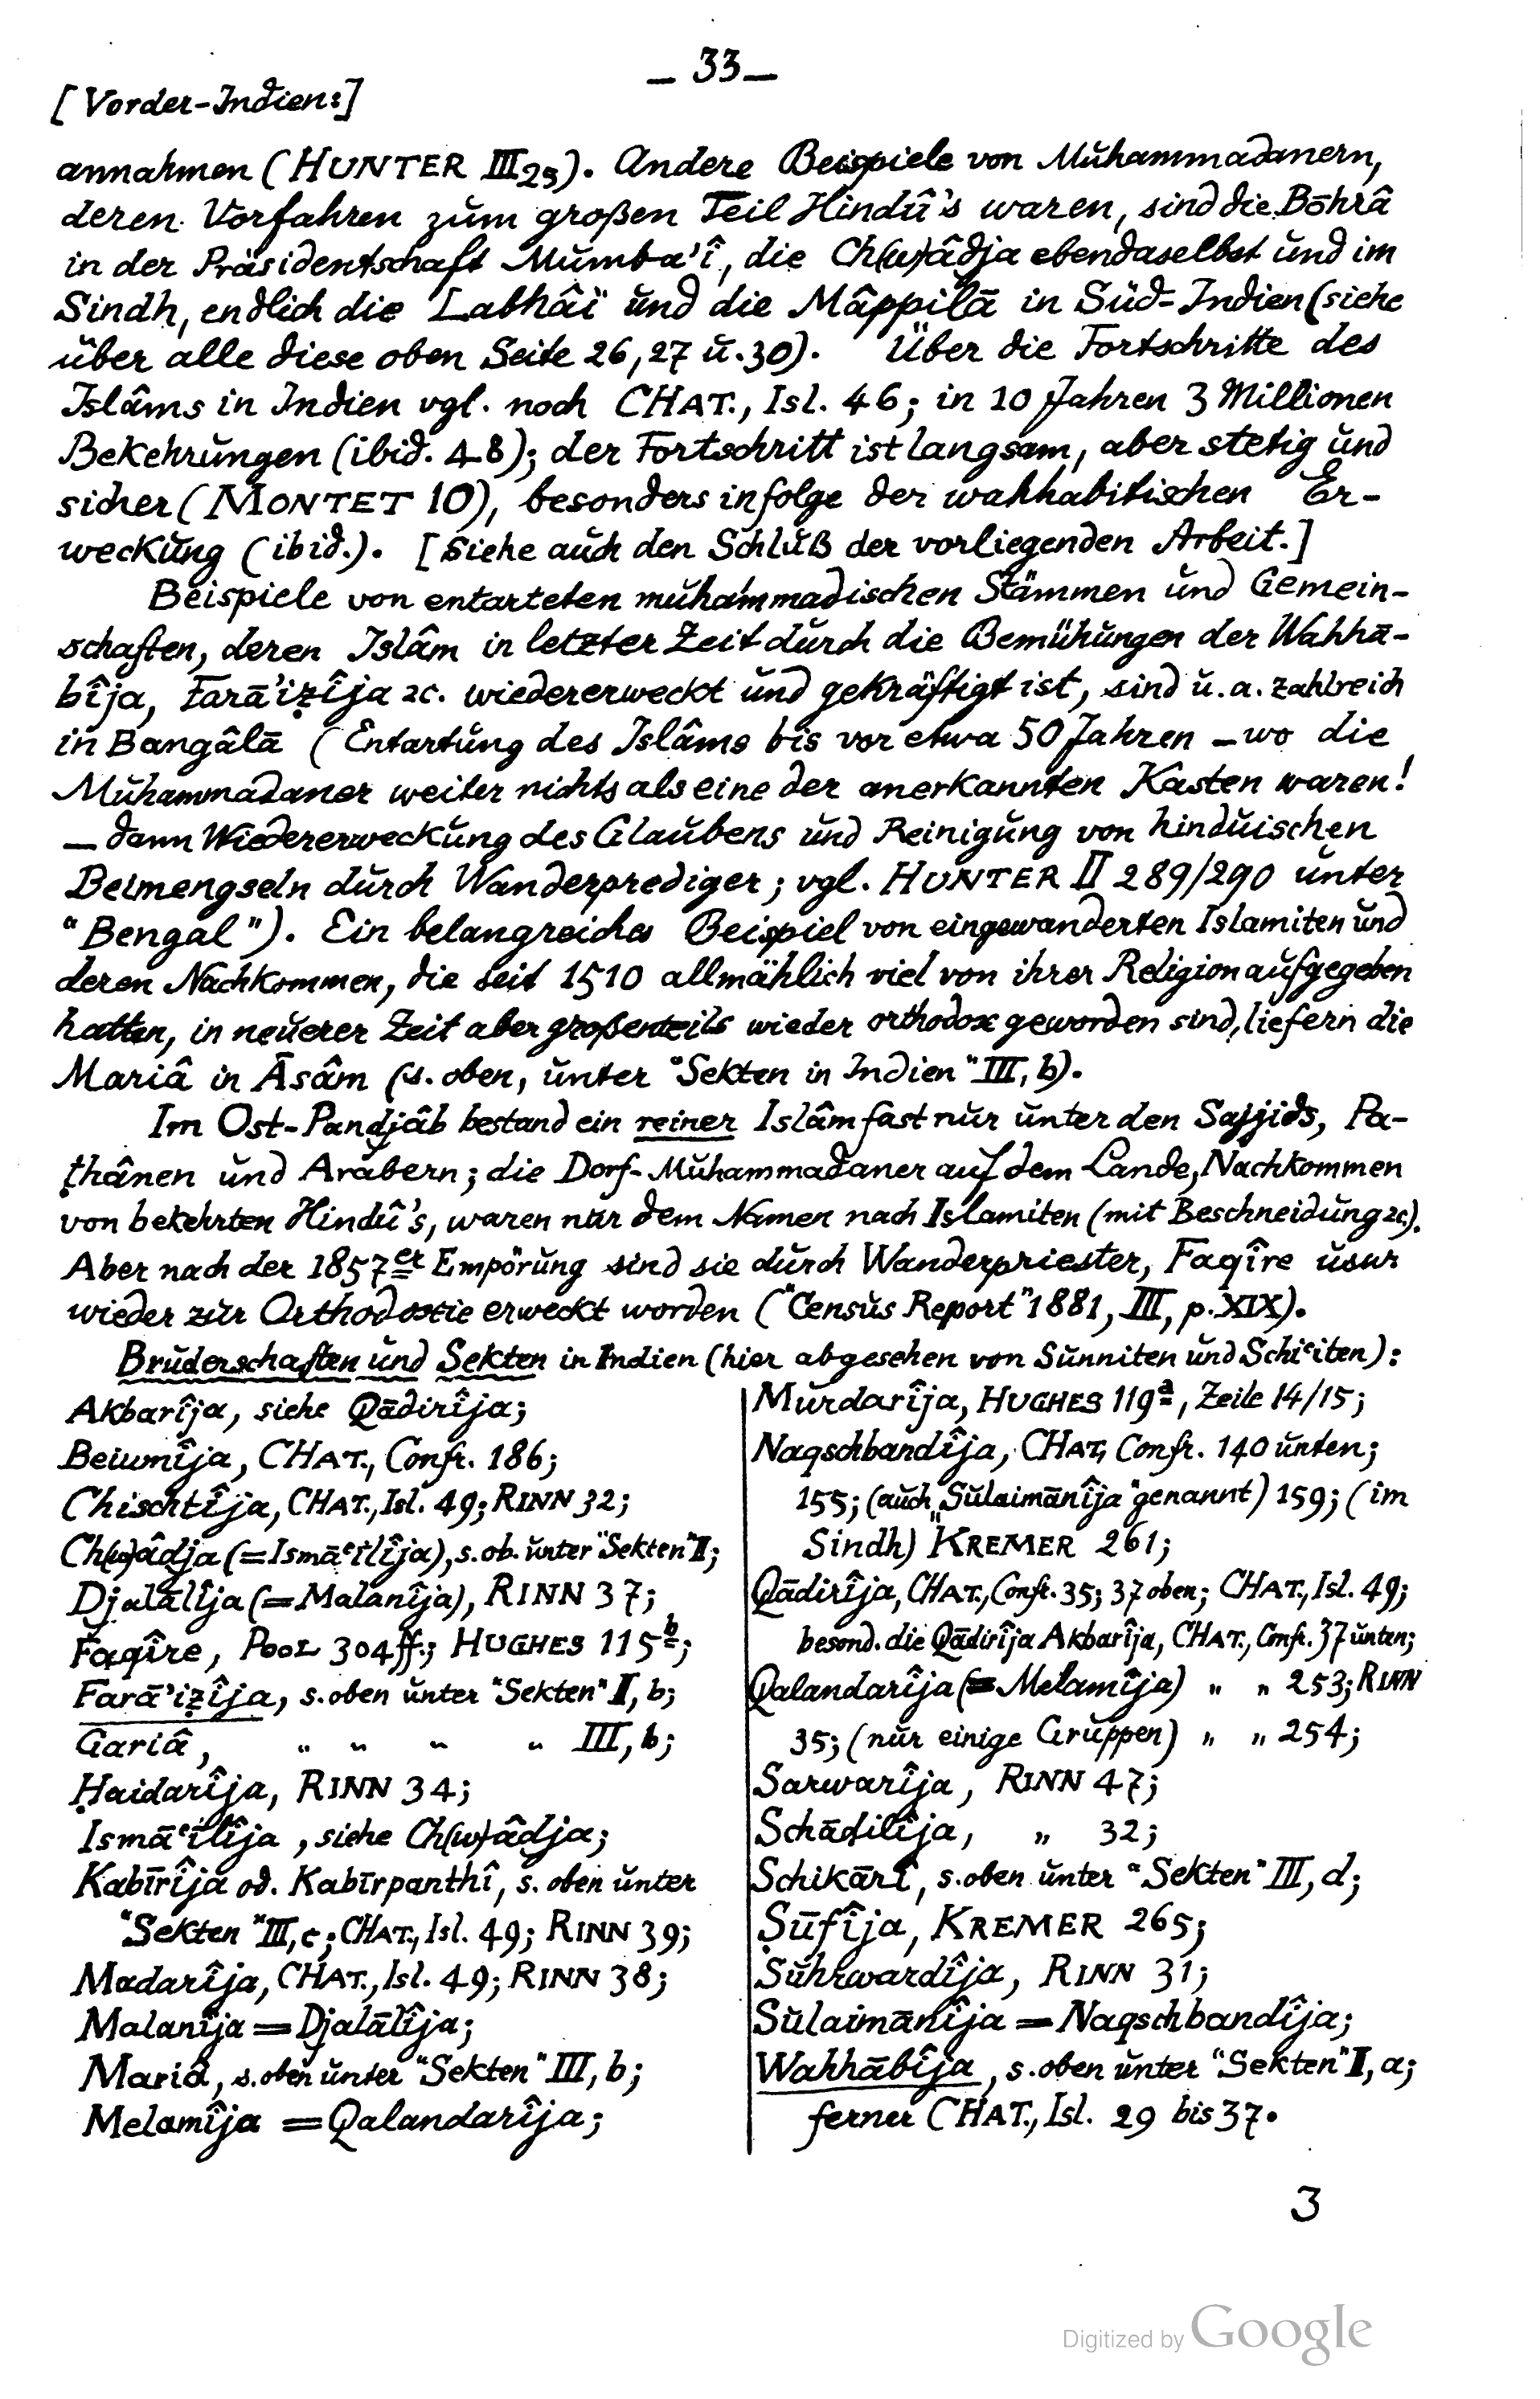 — 33 —
[Vorder-Indien:]
annahmen (HUNTER III 25). Andere Beispiele von Muhammadanern,
deren Vorfahren zum großen Teil Hindû's waren, sind die Bōhrâ
in der Präsidentschaft Mumba'î, die Ch(w)âdja ebendaselbst und im
Sindh, endlich die Labhâï und die Mâppilā in Süd-Indien (siehe
über alle diese oben Seite 26, 27 u. 30). Über die Fortschritte des
Islâms in Indien vgl. noch CHAT., Isl. 46; in 10 Jahren 3 Millionen
Bekehrungen (ibid. 48); der Fortschritt ist langsam, aber stetig und
sicher (MONTET 10), besonders infolge der wahhabitischen Er-
weckung (ibid.). [Siehe auch den Schluß der vorliegenden Arbeit.]
Beispiele von entarteten muhammadischen Stämmen und Gemein-
schaften, deren Islâm in letzter Zeit durch die Bemühungen der Wahhā-
bîja, Farā'iẓîja ꝛc. wiedererweckt und gekräftigt ist, sind u. a. zahlreich
in Bangâlā (Entartung des Islâms bis vor etwa 50 Jahren — wo die
Muhammadaner weiter nichts als eine der anerkannten Kasten waren!
— dann Wiedererweckung des Glaubens und Reinigung von hinduischen
Beimengseln durch Wanderprediger; vgl. HUNTER II 289/290 unter
"Bengal"). Ein belangreiches Beispiel von eingewanderten Islamiten und
deren Nachkommen, die seit 1510 allmählich viel von ihrer Religion aufgegeben
hatten, in neuerer Zeit aber großenteils wieder orthodox geworden sind, liefern die
Mariâ in Āsâm (s. oben, unter "Sekten in Indien" III, b).
Im Ost-Pandjâb bestand ein reiner Islâm fast nur unter den Sajjids, Pa-
ṭhânen und Arabern; die Dorf-Muhammadaner auf dem Lande, Nachkommen
von bekehrten Hindû's, waren nur dem Namen nach Islamiten (mit Beschneidung ꝛc).
Aber nach der 1857er Empörung sind sie durch Wanderpriester, Faqîre usw
wieder zur Orthodoxie erweckt worden ("Census Report" 1881, III, p. XIX).
Bruderschaften und Sekten in Indien (hier abgesehen von Sunniten und Schiʿiten):
Akbarîja, siehe Qādirîja;
Beiumîja, CHAT., Confr. 186;
Chischtîja, CHAT., Isl. 49; RINN 32;
Ch(w)âdja (=Ismāʿîlîja), s. ob. unter "Sekten" II;
Djalālîja (=Malanîja), RINN 37;
Faqîre, POOL 304 ff.; HUGHES 115b;
Farā'iẓîja, s. oben unter "Sekten" I, b;
Gariâ, " " " " III, b;
Ḥaidarîja, RINN 34;
Ismāʿîlîja, siehe Ch(w)âdja;
Kabīrîja od. Kabīrpanthî, s. oben unter
"Sekten" III, c; CHAT., Isl. 49; RINN 39;
Madarîja, CHAT., Isl. 49; RINN 38;
Malanîja = Djalālîja;
Mariâ, s. oben unter "Sekten" III, b;
Melamîja = Qalandarîja;
Murdarîja, HUGHES 119a, Zeile 14/15;
Naqschbandîja, CHAT., Confr. 140 unten;
155; (auch „Sulaimānîja" genannt) 159; (im
Sindh) KREMER 261;
Qādirîja, CHAT., Confr. 35; 37 oben; CHAT., Isl. 49;
besond. die Qādirîja Akbarîja, CHAT., Confr. 37 unten;
Qalandarîja (=Melamîja) " " 253; RINN
35; (nur einige Gruppen) " " 254;
Sarwarîja, RINN 47;
Schādilîja, " 32;
Schikārî, s. oben unter "Sekten" III, d;
Ṣūfîja, KREMER 265;
Suhrwardîja, RINN 31;
Sulaimānîja = Naqschbandîja;
Wahhābîja, s. oben unter "Sekten" I, a;
ferner CHAT., Isl. 29 bis 37.
3
Digitized by Google